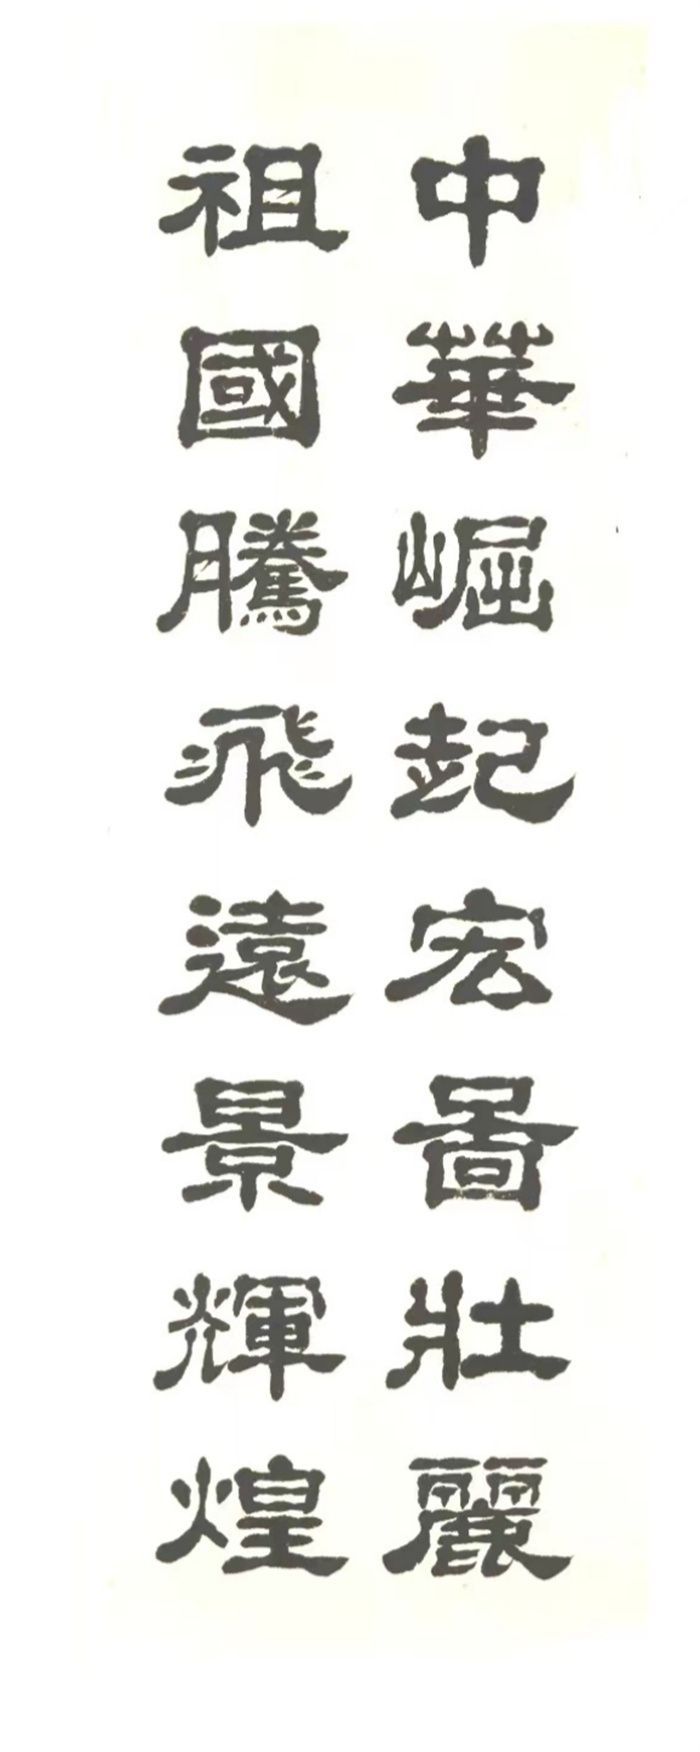 中華崛起宏啚壯麗
祖國騰飛遠景輝煌